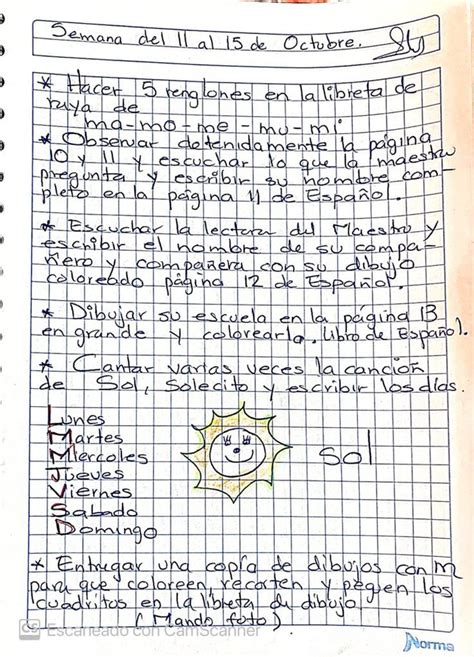 Semana del 11 al 15 de Octubre.
* Hacer 5 renglones en la libreta de
raya de
ma-mo-me-mu-mi
* Observar detenidamente la página
10 y 11 y escuchar lo que la maestra
pregunta y escribir su nombre com-
pleto en la página 11 de Español.
* Escuchar la lectura del Maestro y
escribir el nombre de su compa-
ñero y compañera con su dibujo
coloreado página 12 de Español.
* Dibujar su escuela en la página 13
en grande y colorearlo. libro de Español.
* Cantar varias veces la canción
de Sol, Solecito y escribir los días.
Lunes
Martes
Miercoles
Jueves
Viernes
Sabado
Domingo
sol
* Entregar una copia de dibujos con m
para que coloreen, recorten y peguen los
cuadritos en la libreta de dibujo
(Mando foto)
CS Escaneado con CamScanner
Norma